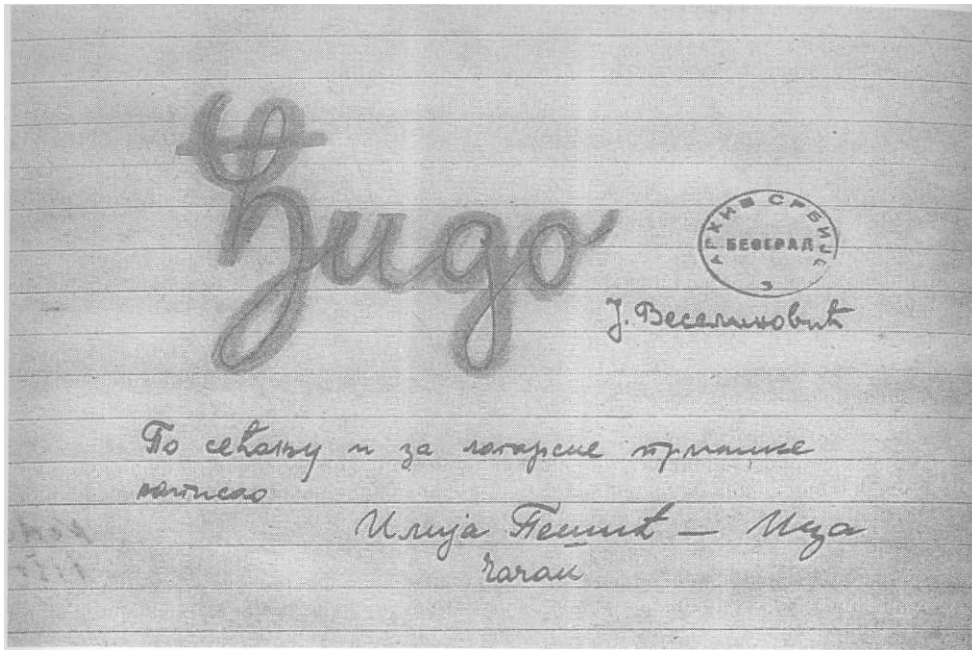 Ђидо
АРХИВ СРБИЈЕ
БЕОГРАД
3
Ј. Веселиновић
По сећању и за логорске прилике
написао
Илија Пешић — Ица
Чачак